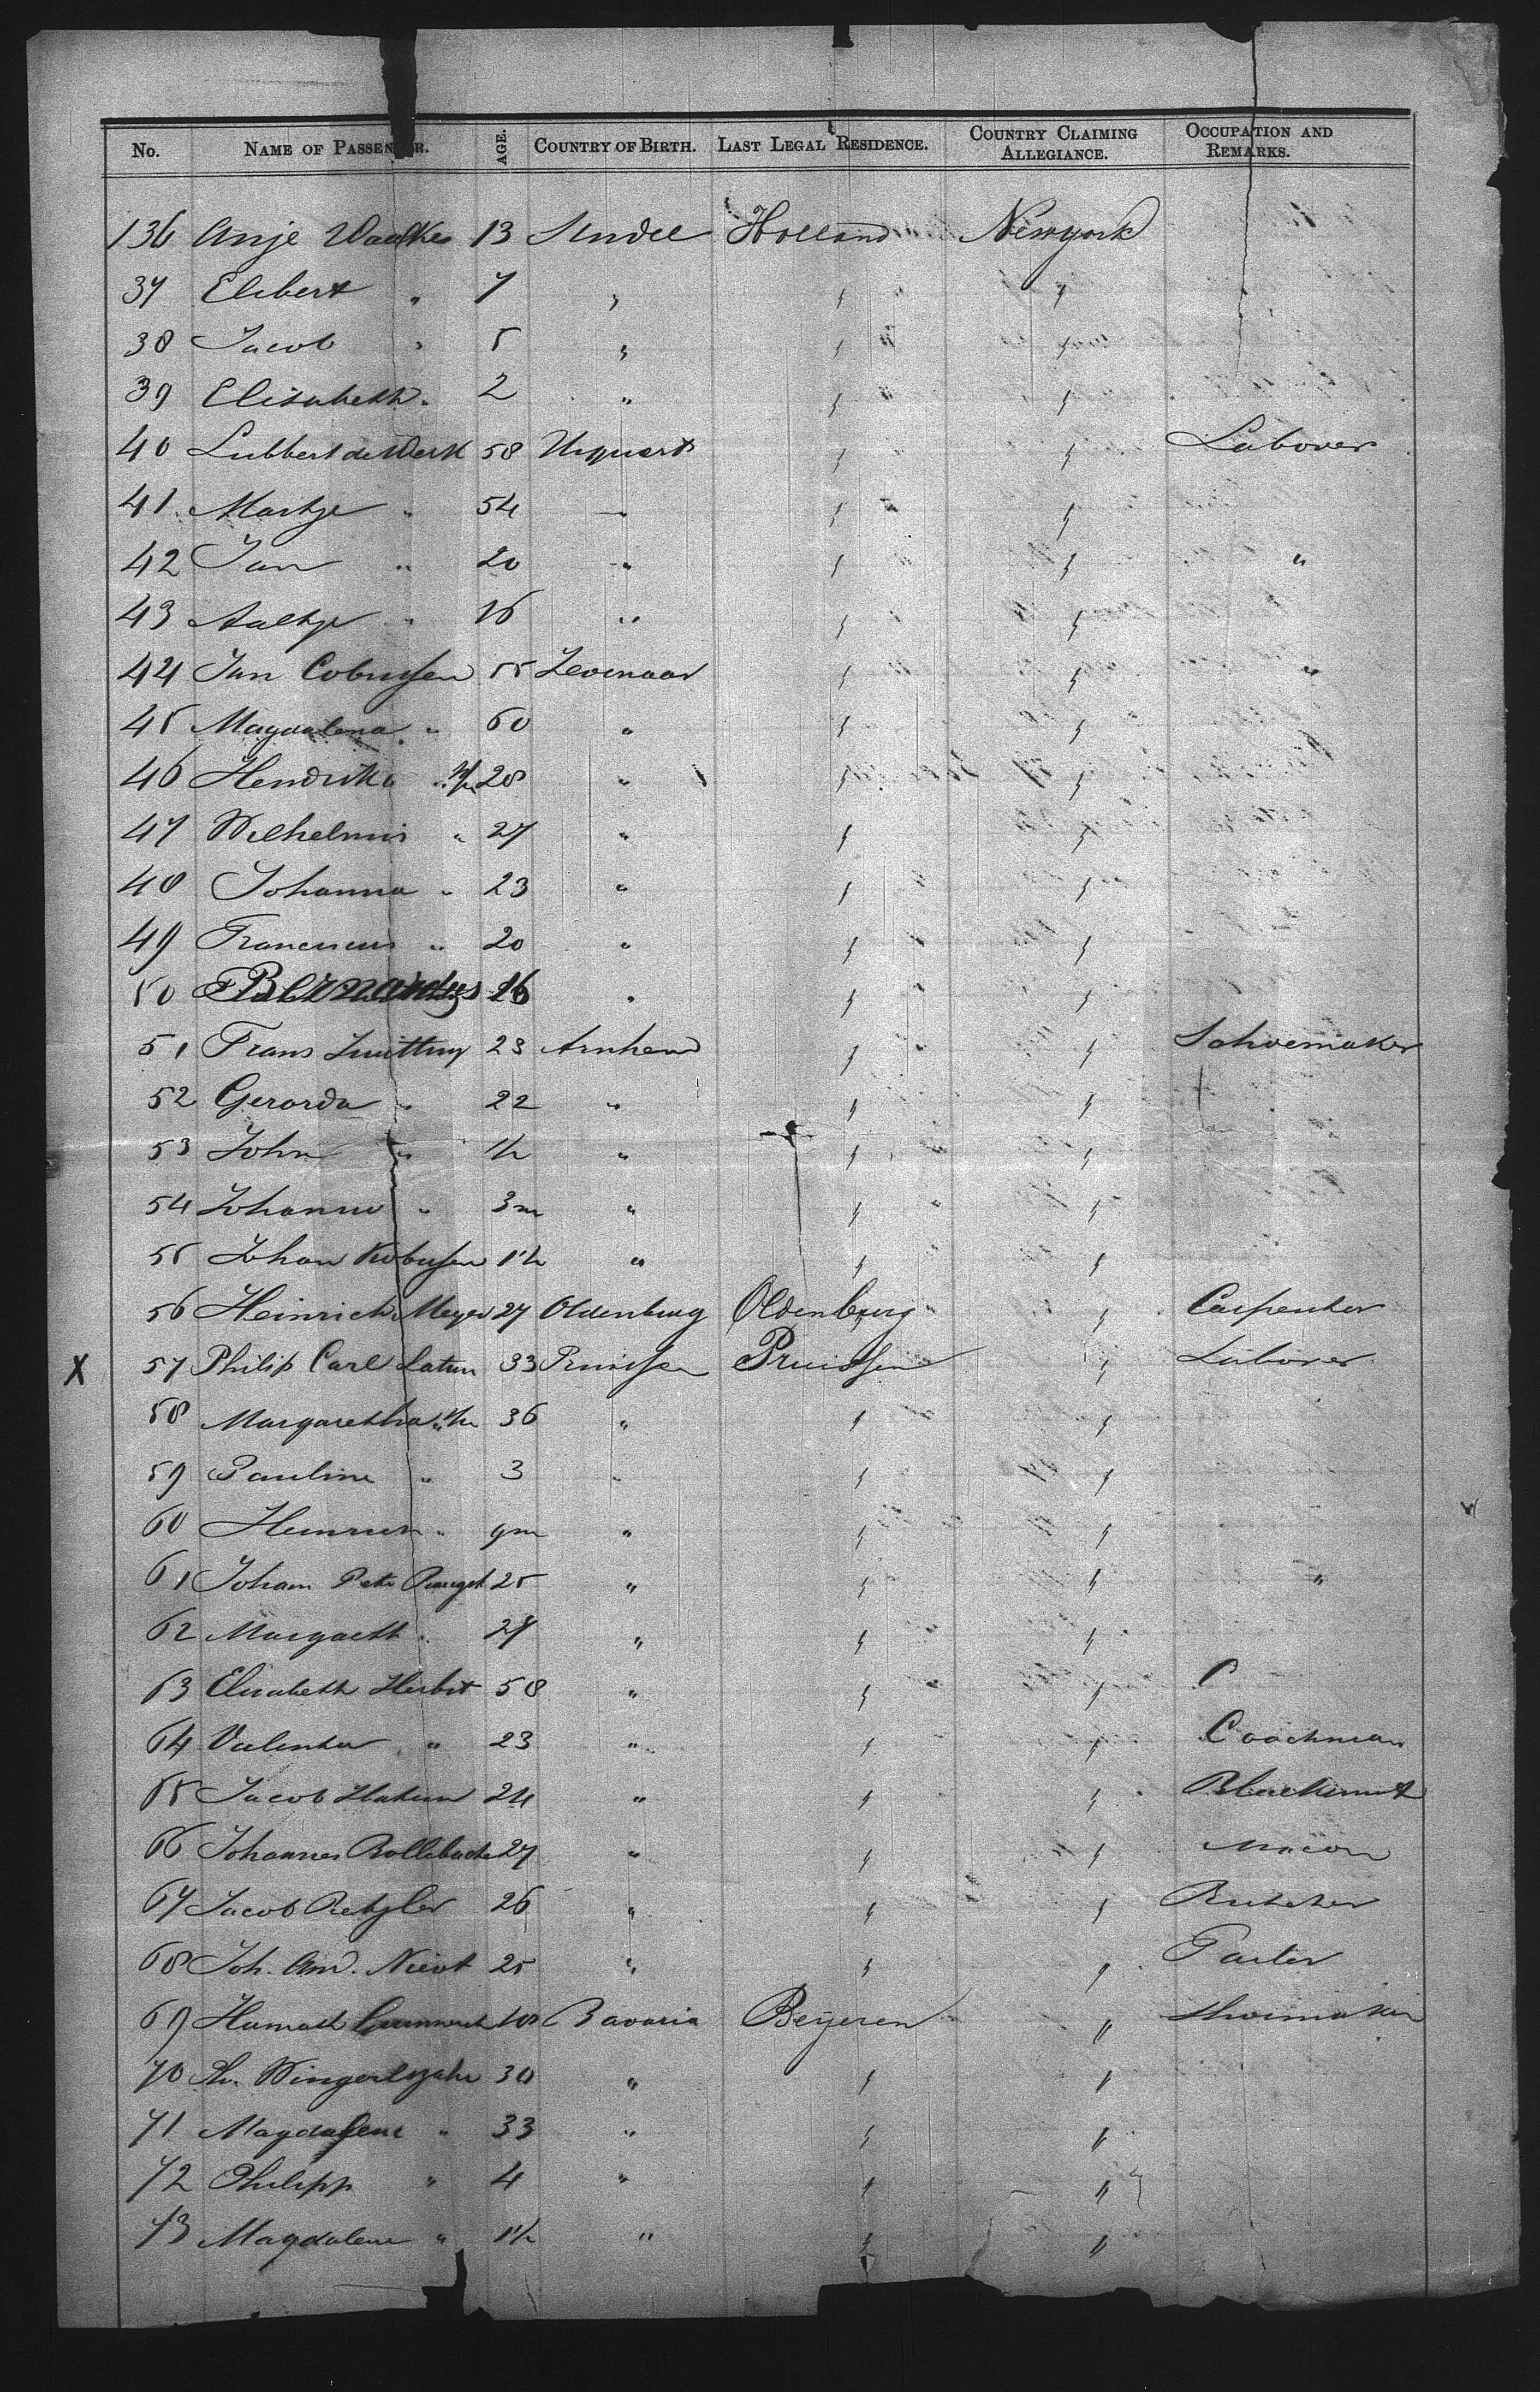 No. NAME OF PASSENGER. AGE. COUNTRY OF BIRTH. LAST LEGAL RESIDENCE. COUNTRY CLAIMING ALLEGIANCE. OCCUPATION AND REMARKS.
136 Anje Waalkes 13 Andel Holland Newyork
37 Elibert " 7 " " "
38 Jacob " 5 " " "
39 Elisabeth " 2 " " "
40 Lubbert de Werk 58 Uquert " " Laborer
41 Martje " 54 " " "
42 Jan " 20 " " " "
43 Aaltje " 16 " " "
44 Jan Cobussen 55 Zevenaar " " "
45 Magdalena " 60 " " "
46 Hendrika " 28 " " "
47 Wilhelmis " 27 " " "
48 Johanna " 23 " " "
49 Franciscus " 20 " " "
50 Bernardus 16 " " "
51 Frans 23 Arnhem " " Schoemaker
52 Gerarda " 22 " " "
53 John " 1½ " " "
54 Johanna " 3m " " "
55 Johan Kobussen 1½ " " "
56 Heinrich Meyer 27 Oldenburg Oldenburg " Carpenter
X 57 Philip Carl 33 Pruissen Pruissen " Laborer
58 Margaretha " 36 " " "
59 Pauline " 3 " " "
60 " 9m " " "
61 Joham 25 " " " "
62 Margaeth " 27 " " "
63 Elisabeth Herbst 58 " " "
64 " 23 " " " Coachman
65 Jacob 24 " " "
66 Johannes 27 " " " Macon
67 Jacob 26 " " " Butcher
68 Joh. And. 25 " " "
69 Bavaria Beyeren " Shoemaker
70 30 " " "
71 Magdalene " 33 " " "
72 Philipp " 4 " " "
73 Magdalene " 1½ " " "